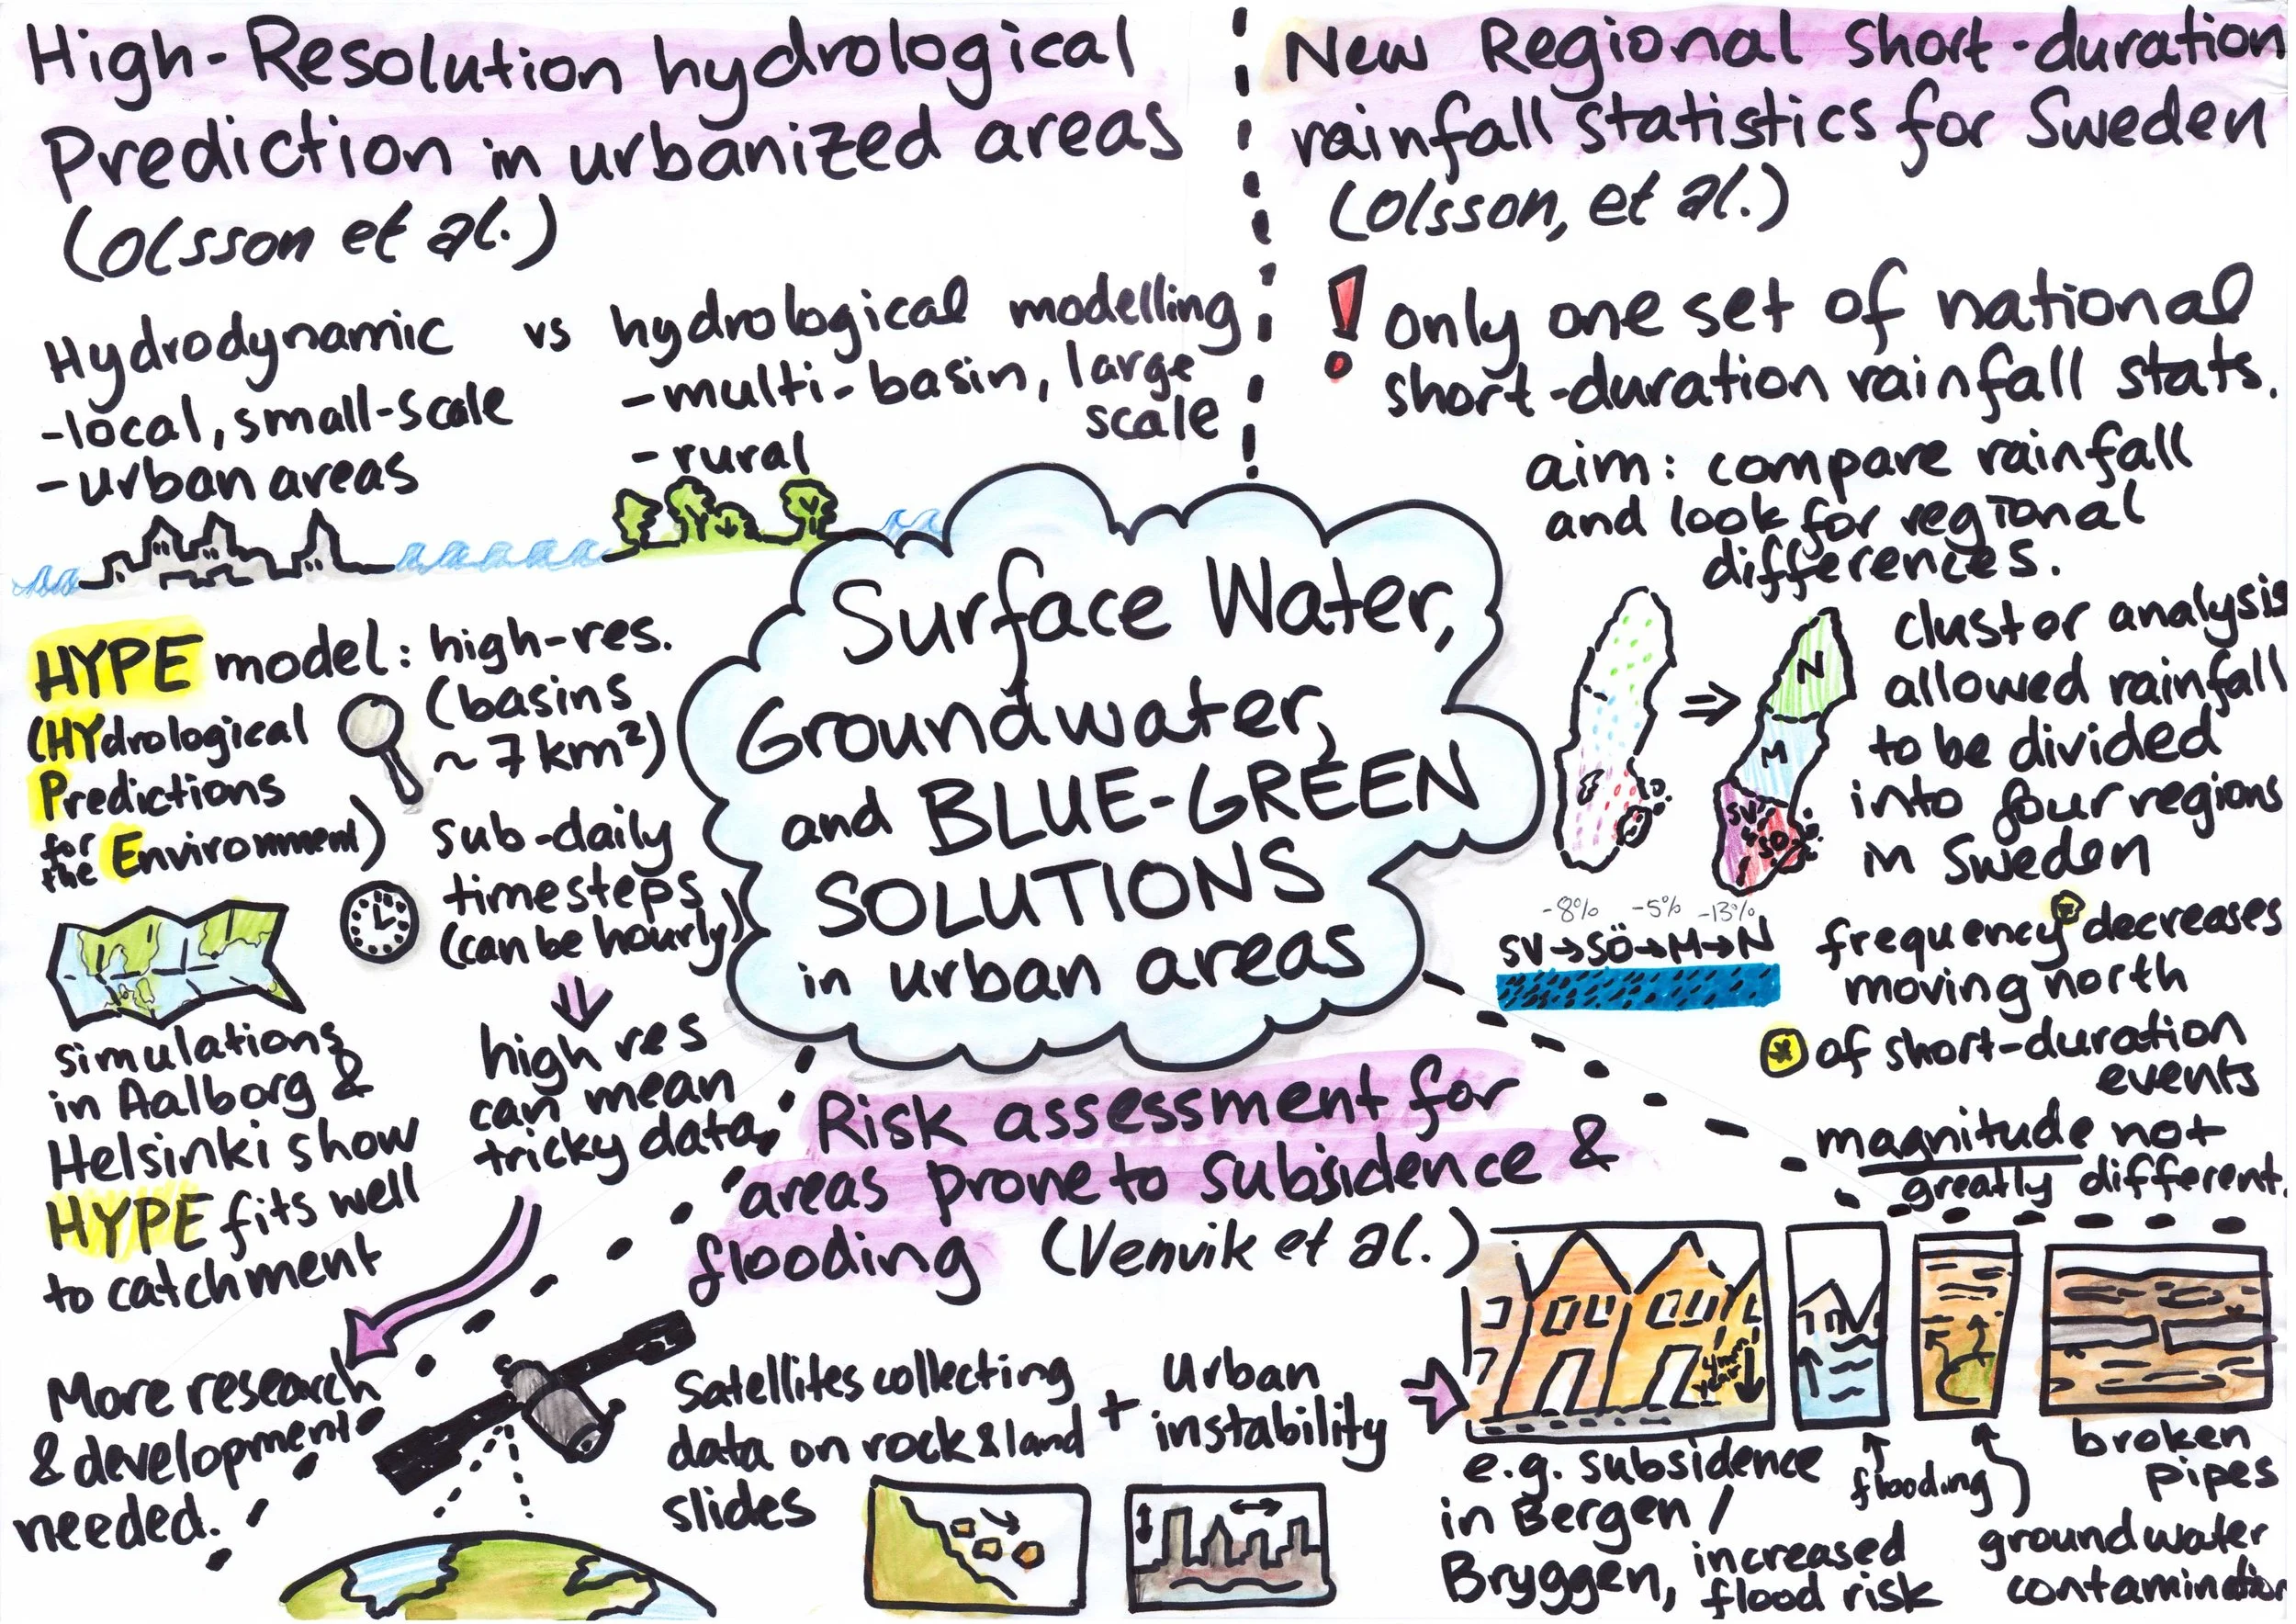 High-Resolution hydrological
Prediction in urbanized areas
(Olsson et al.)
Hydrodynamic vs hydrological modelling
-local, small-scale
-urban areas
-multi-basin, large
scale
-rural
HYPE model: high-res.
(basins
~7km²)
(HYdrological
Predictions
for the Environment)
sub-daily
timesteps
(can be hourly)
simulations
in Aalborg &
Helsinki show
HYPE fits well
to catchment
high res
can mean
tricky data
More research
& development
needed.
New Regional short-duration
rainfall statistics for Sweden
(Olsson, et al.)
! only one set of national
short-duration rainfall stats.
aim: compare rainfall
and look for regional
differences.
N
M
SV
SÖ
cluster analysis
allowed rainfall
to be divided
into four regions
in Sweden
-8% -5% -13%
SV→SÖ→M→N
frequency* decreases
moving north
* of short-duration
events
magnitude not
greatly different.
Surface Water,
Groundwater,
and BLUE-GREEN
SOLUTIONS
in urban areas
Risk assessment for
areas prone to subsidence &
flooding (Venvik et al.)
Satellites collecting
data on rock & land
slides
+ Urban
instability
e.g. subsidence
in Bergen/
Bryggen, increased
flood risk
flooding
groundwater
contamination
broken
pipes